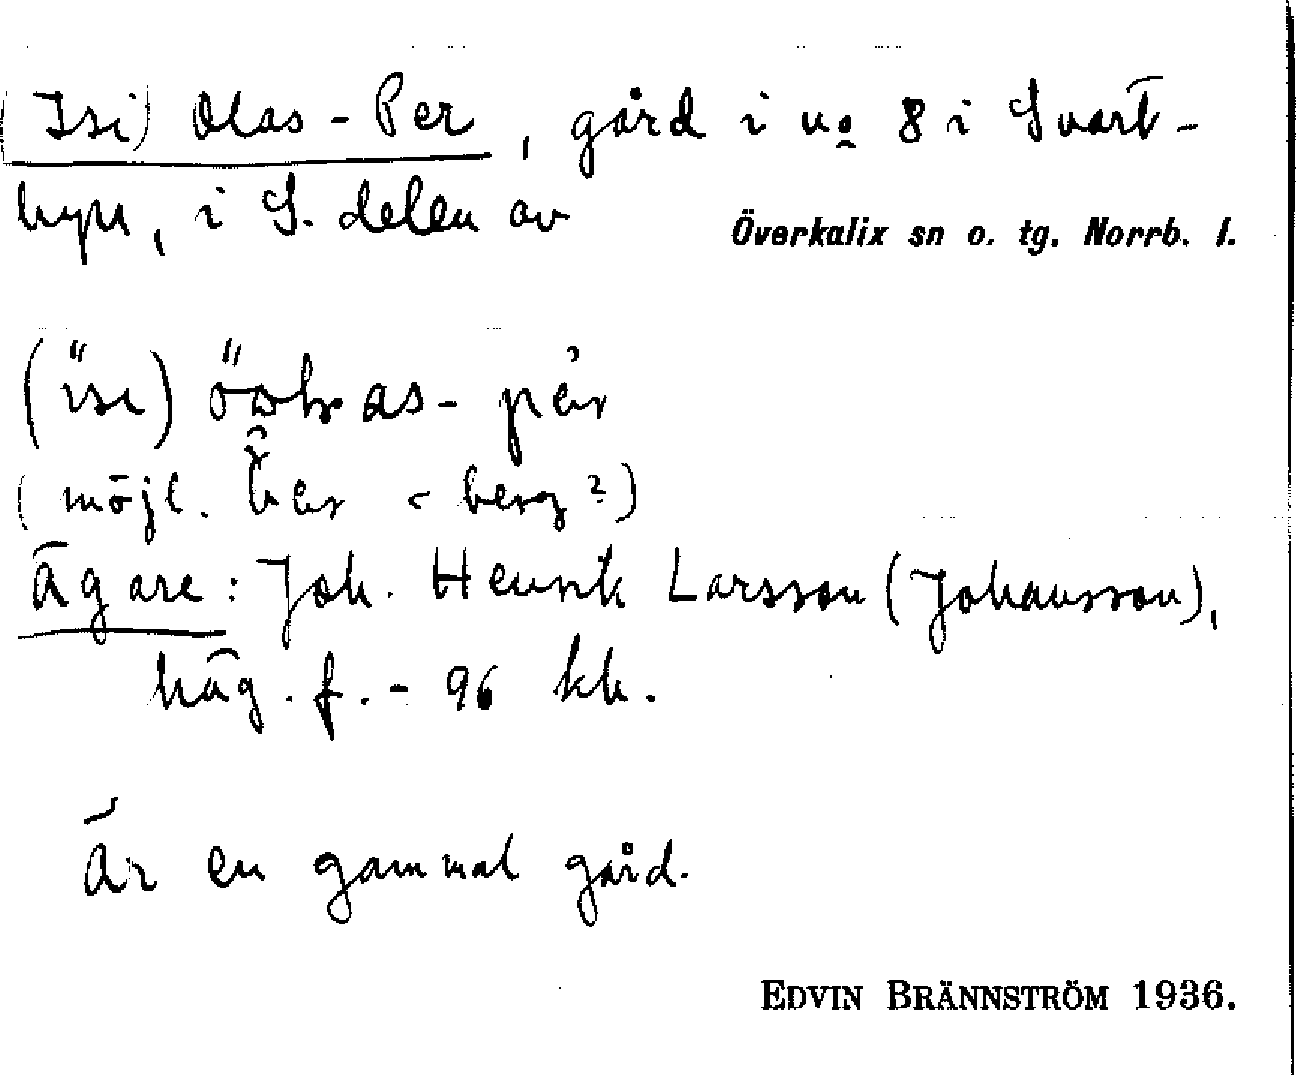 (Isi) Olas-Per, gård i no 8 i Svart-
byn, i S. delen av Överkalix sn o. tg. Norrb. l.
(möjl. ber < berg?)
Ägare: Joh. Henrik Larsson (Johansson),
häg. f. - 96 kh.
Är en gammal gård.
EDVIN BRÄNNSTRÖM 1936.